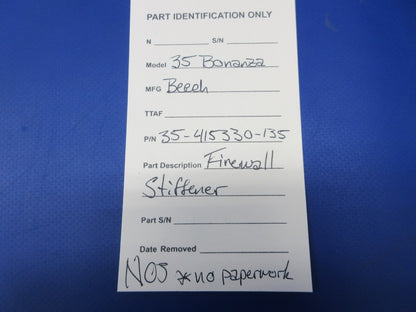 PART IDENTIFICATION ONLY
N ____________ S/N ____________
Model 35 Bonanza
MFG Beech
TTAF ____________
P/N 35-415330-135
Part Description Firewall
Stiffener
Part S/N ____________
Date Removed ____________
NOS *no paperwork